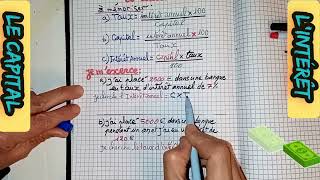 LE CAPITAL
L'INTÉRÊT
à mémoriser:
a) Taux = intérêt annuel × 100
Capital
b) Capital = intérêt annuel × 100
Taux
c) Intérêt Annuel = Capital × taux
100
je m'exerce:
a) j'ai placé 2500 € dans une banque
au taux d'intérêt annuel de 7%
je cherche l'Intérêt Annuel = C × T
b) j'ai placé 5000 € dans une banque
pendant un an et j'ai eu un intérêt de
120 €
je cherche le taux d'intérêt